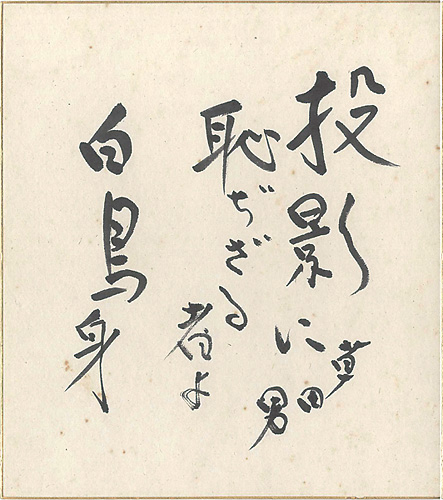 投影に
恥ぢざる
者よ
白鳥身
草田男